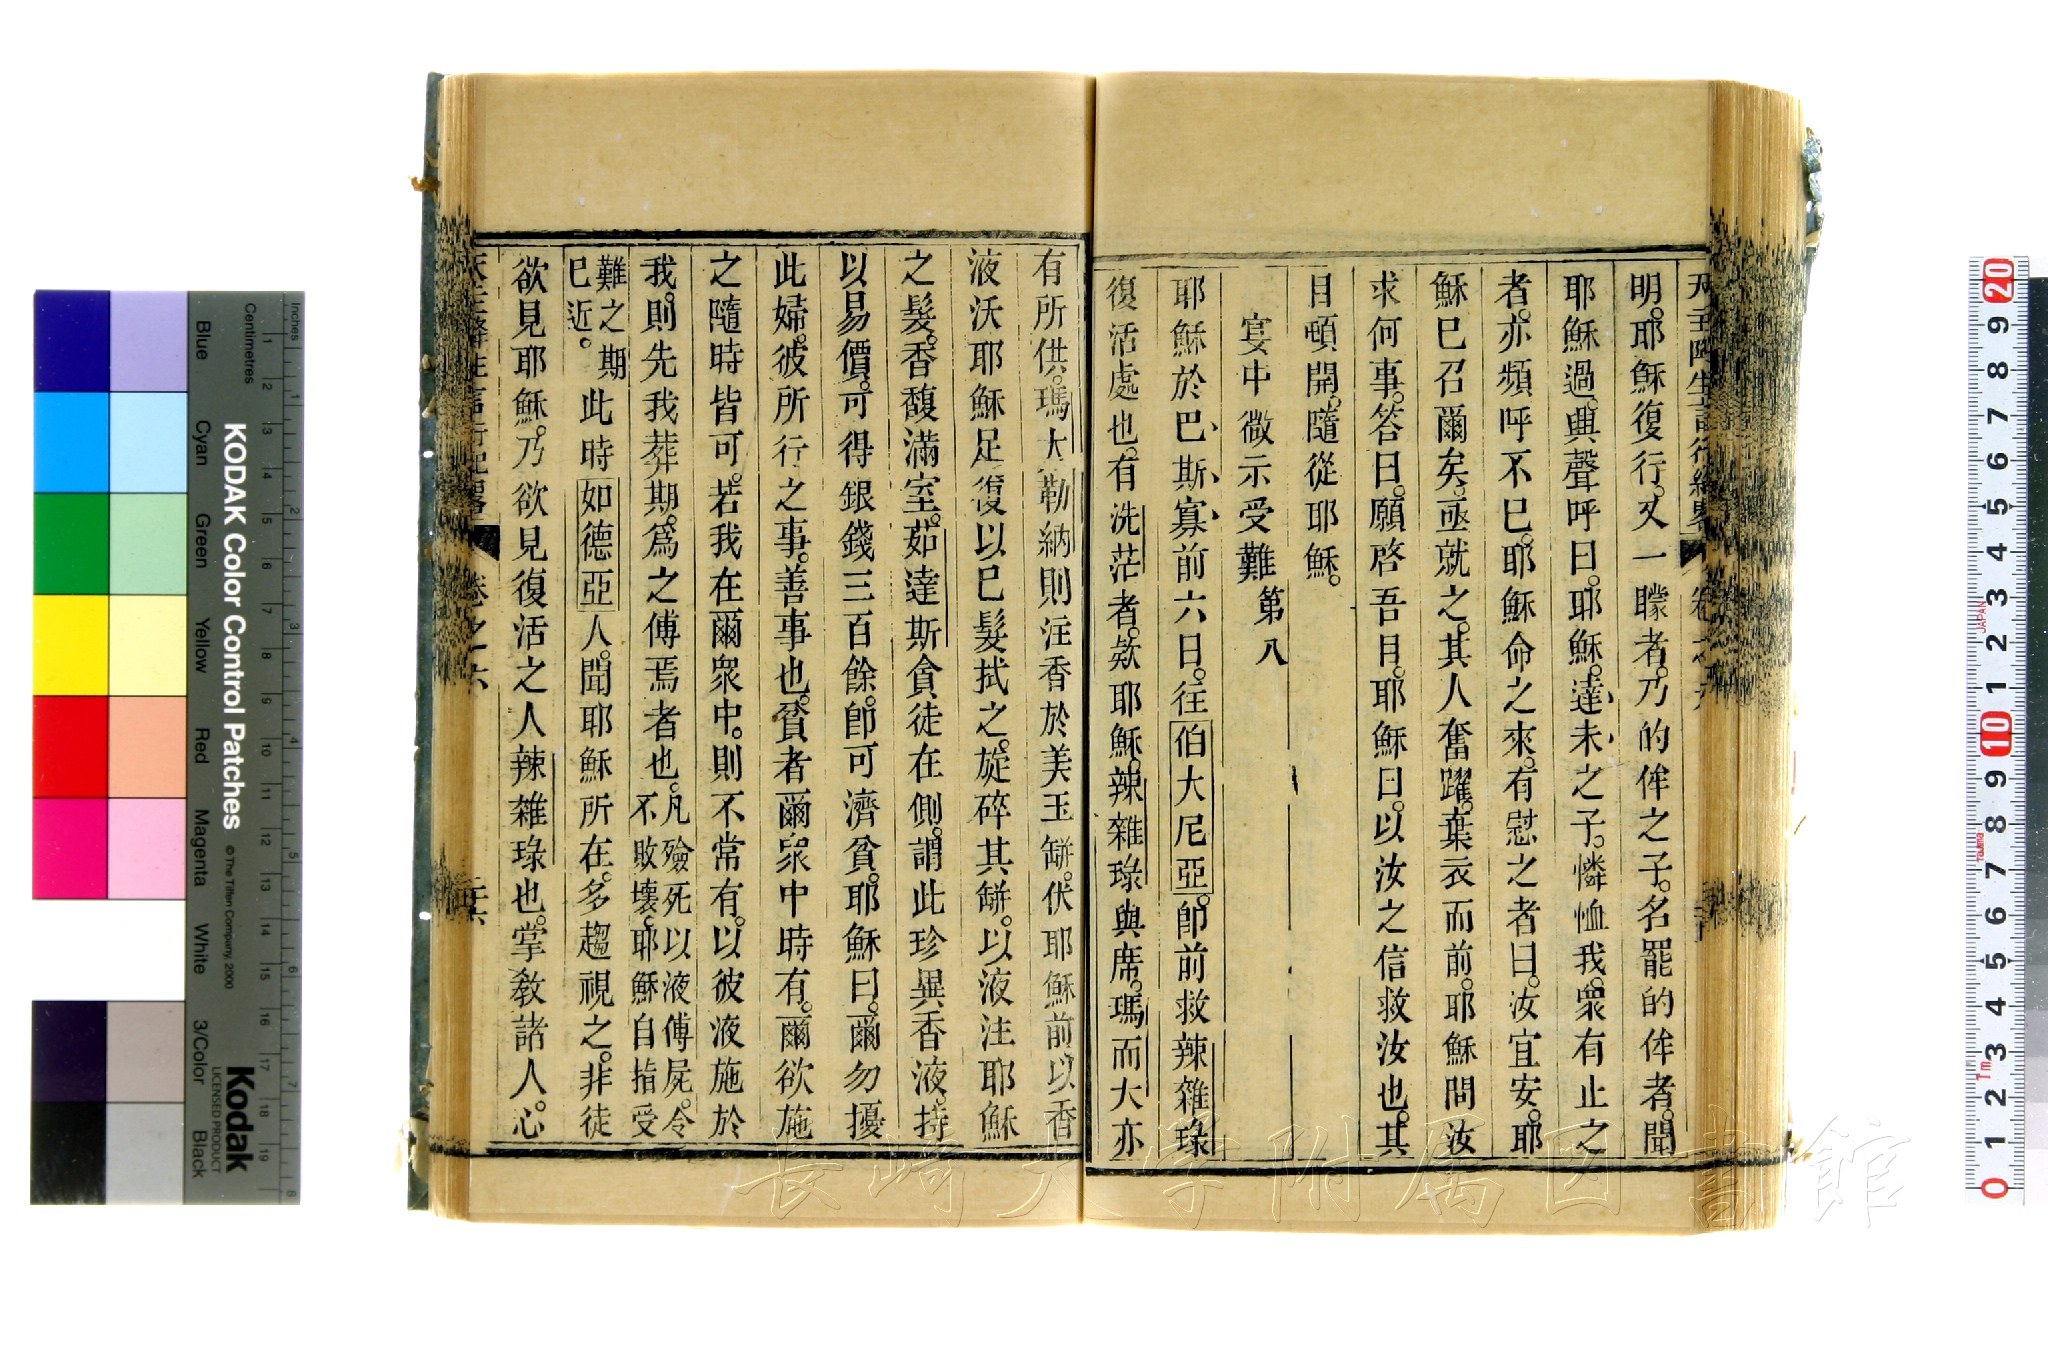 明。耶穌復行。又一矇者。乃的侔之子。名罷的侔者。聞
耶穌過。興聲呼曰。耶穌。達未之子。憐恤我。衆有止之
者。亦頻呼不已。耶穌命之來。有慰之者曰。汝宜安。耶
穌已召爾矣。亟就之。其人奮躍。棄衣而前。耶穌問汝
求何事。答曰。願啓吾目。耶穌曰。以汝之信救汝也。其
目頓開。隨從耶穌。
宴中微示受難 第八
耶穌於巴斯寡前六日。往伯大尼亞。卽前救辣雜琭
復活處也。有洗茫者。欵耶穌。辣雜琭與席。瑪而大亦
有所供。瑪大勒納則注香於美玉缾。伏耶穌前。以香
液沃耶穌足。復以已髮拭之。旋碎其缾。以液注耶穌
之髮。香馥滿室。茹達斯貪徒在側。謂此珍異香液。持
以易價。可得銀錢三百餘。卽可濟貧。耶穌曰。爾勿擾
此婦。彼所行之事。善事也。貧者爾衆中時有。爾欲施
之隨時皆可。若我在爾衆中。則不常有。以彼液施於
我。則先我葬期。爲之傅焉者也。凡殮死以液傅屍。令不敗壞。耶穌自指受
難之期已近。此時如德亞人。聞耶穌所在。多趨視之。非徒
欲見耶穌。乃欲見復活之人辣雜琭也。掌敎諸人。心
天主降生言行紀畧 卷之六
長崎大学附属図書館
KODAK Color Control Patches
© The Tiffen Company, 2000
Kodak
LICENSED PRODUCT
Inches
Centimetres
Blue
Cyan
Green
Yellow
Red
Magenta
White
3/Color
Black
JAPAN
Tajima
Tm
20 9 8 7 6 5 4 3 2 1 10 9 8 7 6 5 4 3 2 1 0